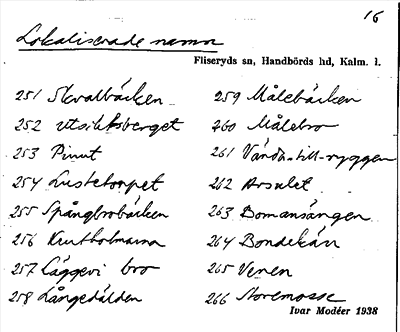 16
Lokaliserade namn
Fliseryds sn, Handbörds hd, Kalm. l.
251 Skvallbäcken
252 Utsiktsberget
253 Pinut
254 Lustetorpet
255 Spångbrobäcken
256 Knutholmarna
257 Läggevi bro
258 Långedälden
259 Målebäcken
260 Målebro
261 Vänd-till-ryggen
262 Arsulet
263 Domansängen
264 Bondekärr
265 Venen
266 Storemosse
Ivar Modéer 1938